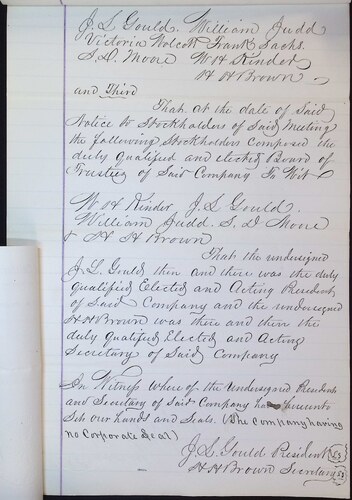 J. L. Gould. William Judd
Victoria Wolcott Frank Sachs.
S. D. Moore W H Kinder
H H Brown
and Third
That at the date of Said
Notice to Stockholders of Said Meeting
the following Stockholders Composed the
duly Qualified and elected Board of
Trustees of Said Company To Wit
W H Kinder J L Gould.
William Judd. S. D Moore
& H. H Brown
That the undersigned
J. L. Gould then and there was the duly
Qualified Elected and Acting President
of Said Company and the undersigned
H H Brown was there and then the
duly Qualified Elected and Acting
Secretary of Said Company
In Witness Where of the Undersigned President
and Secretary of Said Company have hereunto
Set our hands and Seals. (The Company having
no Corporate Seal)
J. L. Gould President
H H Brown Secretary